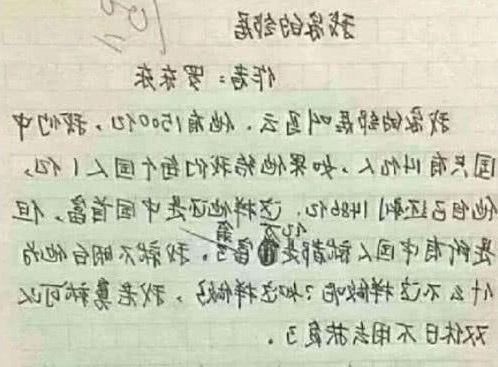 我家的邻居
作者：罗东东
我家的邻居叫马云，他有1500亿，我们中
国只有14亿人，如果他给我们每个国人1亿，
他自己还剩1486亿。这样他还是中国首富，但
是所有中国人就都是亿万富翁了。我就不明白他为
什么不这样做呢？如这样做的，我老就可以
双休日不用去扶贫了。